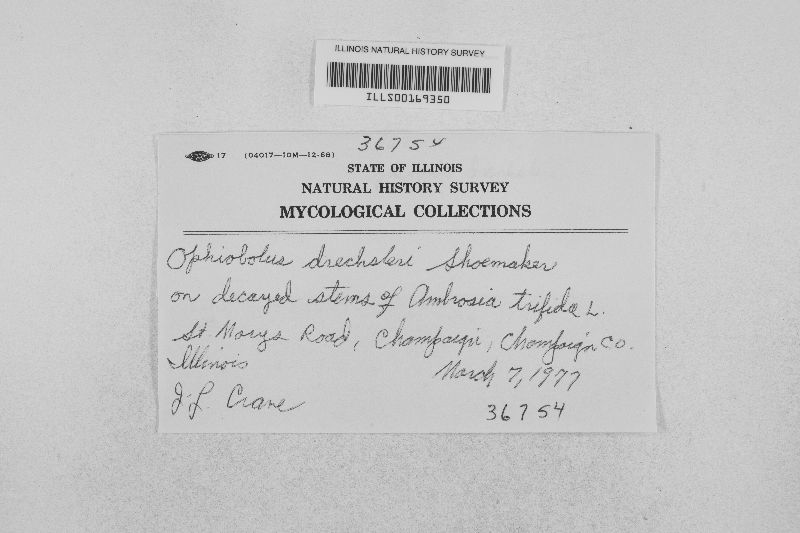 ILLINOIS NATURAL HISTORY SURVEY
ILLS00169350
36754
17 (04017—10M—12-68)
STATE OF ILLINOIS
NATURAL HISTORY SURVEY
MYCOLOGICAL COLLECTIONS
Ophiobolus drechsleri Shoemaker
on decayed stems of Ambrosia trifida L.
St. Marys Road, Champaign, Champaign Co.
Illinois
March 7, 1977
J.L. Crane
36754